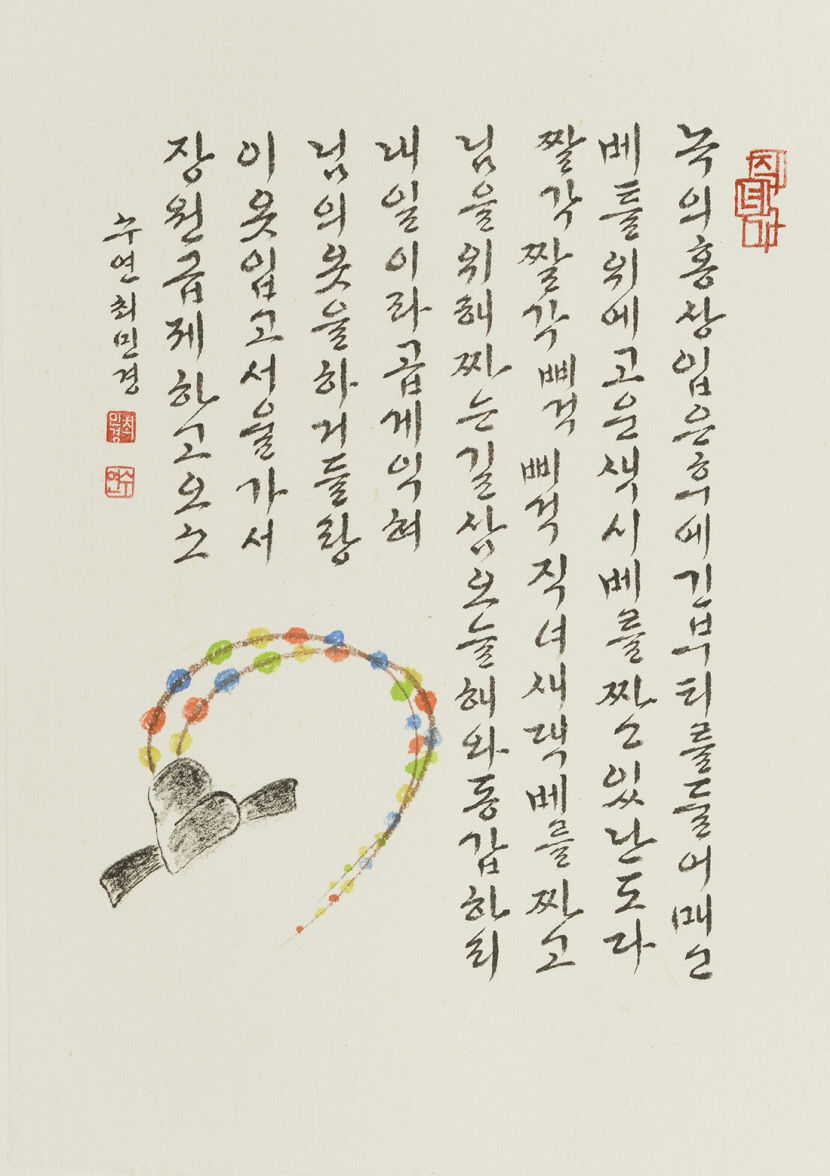 직녀가
녹의홍상입은후에긴부티를둘어매고
베틀위에고운색시베를짜고있난도다
짤각짤각삐걱삐걱직녀새댁베를짜고
님을위해짜는길삼오늘해와동갑하리
내일이라곱게익혀
님의옷을하거들랑
이옷입고서울가서
장원급제하고오소
수연최민경
수연